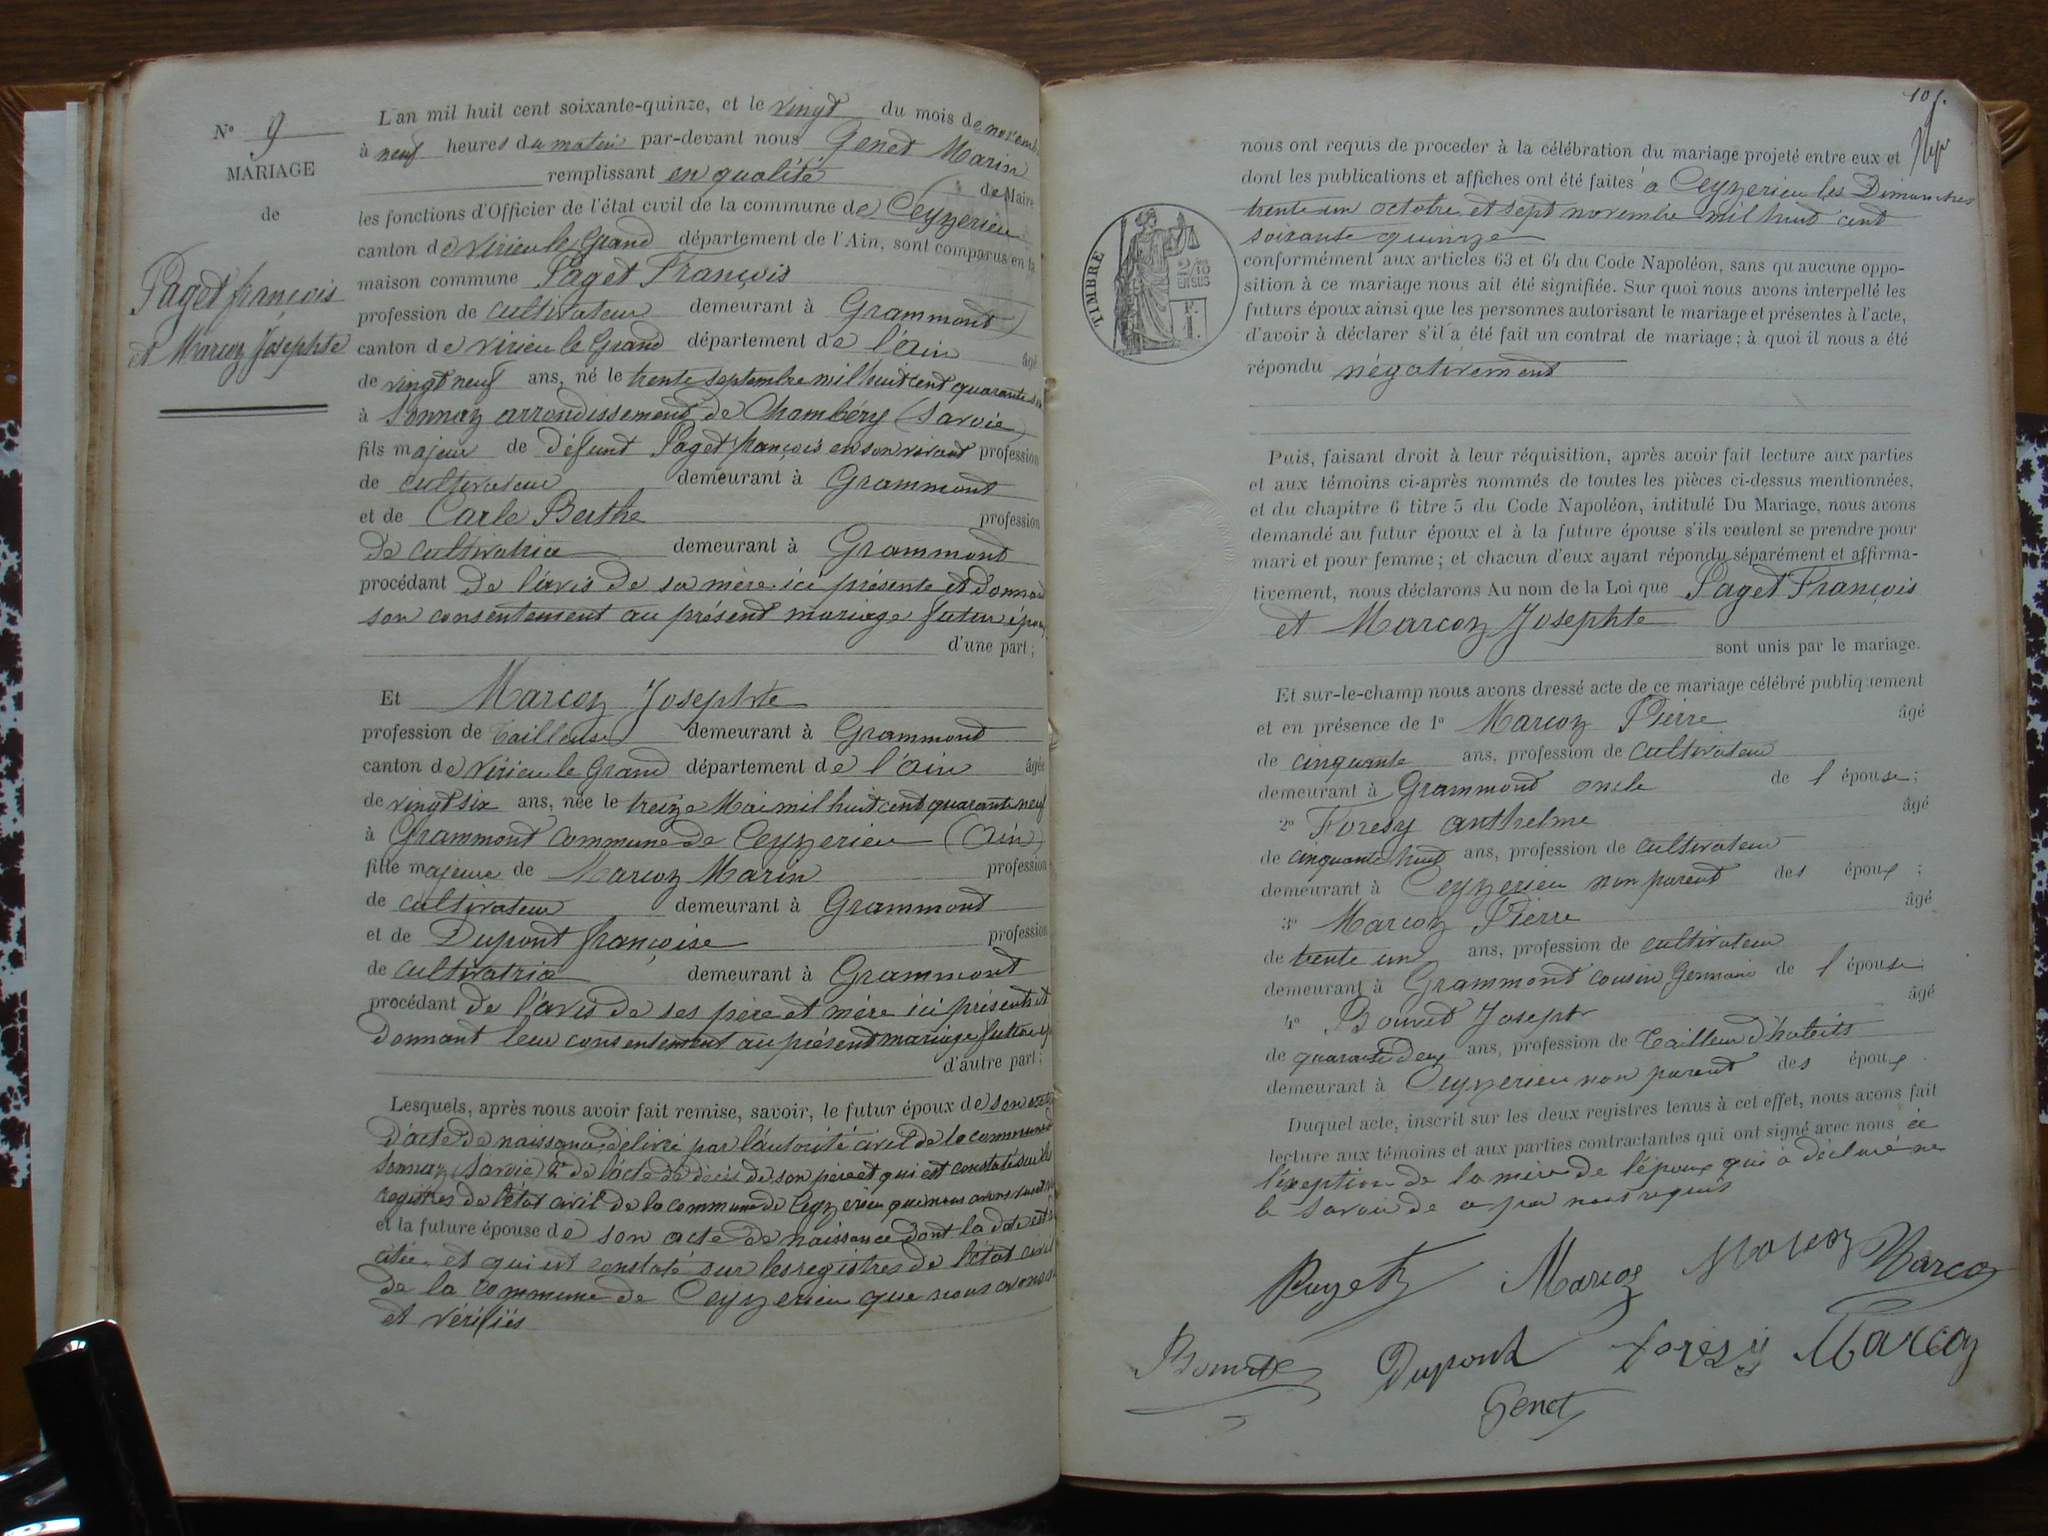 N° 9
MARIAGE
de
Paget françois
et Marcoz Josephte
L'an mil huit cent soixante-quinze, et le vingt du mois de novembre
à neuf heures du matin par-devant nous Genet Marin
remplissant en qualité de Maire
les fonctions d'Officier de l'état civil de la commune de Ceyzerieu
canton de Virieu le Grand département de l'Ain, sont comparus en la
maison commune Paget François
profession de cultivateur demeurant à Grammont
canton de Virieu le Grand département de l'Ain âgé
de vingt neuf ans, né le trente septembre mil huit cent quarante six
à Sonnaz arrondissement de Chambéry (Savoie)
fils majeur de défunt Paget françois en son vivant profession
de cultivateur demeurant à Grammont
et de Carle Berthe profession
de cultivatrice demeurant à Grammont
procédant de l'avis de sa mère ici présente et donnant
son consentement au présent mariage futur époux
d'une part;
Et Marcoz Josephte
profession de Tailleuse demeurant à Grammont
canton de Virieu le Grand département de l'Ain âgée
de vingt six ans, née le treize Mai mil huit cent quarante neuf
à Grammont commune de Ceyzerieu (Ain)
fille majeure de Marcoz Marin profession
de cultivateur demeurant à Grammont
et de Dupont françoise profession
de cultivatrice demeurant à Grammont
procédant de l'avis de ses père et mère ici présents et
donnant leur consentement au présent mariage future
d'autre part;
Lesquels, après nous avoir fait remise, savoir, le futur époux de son
d'acte de naissance délivré par l'autorité civil de la commune de
Sonnaz (Savoie) 2° de l'acte de décès de son père et qui est constaté sur les
registres de l'état civil de la commune de Ceyzerieu que nous avons
et la future épouse de son acte de naissance dont la date est
citée et qui est constaté sur les registres de l'état civil
de la commune de Ceyzerieu que nous avons
et vérifiés
105.
nous ont requis de proceder à la célébration du mariage projeté entre eux et
dont les publications et affiches ont été faites à Ceyzerieu les Dimanches
trente un octobre et sept novembre mil huit cent
soixante quinze
conformément aux articles 63 et 64 du Code Napoléon, sans qu'aucune oppo-
sition à ce mariage nous ait été signifiée. Sur quoi nous avons interpellé les
futurs époux ainsi que les personnes autorisant le mariage et présentes à l'acte,
d'avoir à déclarer s'il a été fait un contrat de mariage; à quoi il nous a été
répondu négativement
TIMBRE
2/10
EN SUS
F.
1.
Puis, faisant droit à leur réquisition, après avoir fait lecture aux parties
et aux témoins ci-après nommés de toutes les pièces ci-dessus mentionnées,
et du chapitre 6 titre 5 du Code Napoléon, intitulé Du Mariage, nous avons
demandé au futur époux et à la future épouse s'ils veulent se prendre pour
mari et pour femme; et chacun d'eux ayant répondu séparément et affirma-
tivement, nous déclarons Au nom de la Loi que Paget François
et Marcoz Josephte
sont unis par le mariage.
Et sur-le-champ nous avons dressé acte de ce mariage célébré publiquement
et en présence de 1° Marcoz Pierre âgé
de cinquante ans, profession de cultivateur
demeurant à Grammont oncle de l'épouse;
2° Foresy anthelme âgé
de cinquante huit ans, profession de cultivateur
demeurant à Ceyzerieu non parent des époux;
3° Marcoz Pierre âgé
de trente un ans, profession de cultivateur
demeurant à Grammont cousin Germain de l'épouse
4° Bouvet Joseph âgé
de quarante deux ans, profession de Tailleur d'habits
demeurant à Ceyzerieu non parent des époux.
Duquel acte, inscrit sur les deux registres tenus à cet effet, nous avons fait
lecture aux témoins et aux parties contractantes qui ont signé avec nous à
l'exeption de la mère de l'époux qui a déclaré ne
le savoir de ce par nous requis
Paget Marcoz Marcoz Marcoz
Bouvet Dupont foresy Marcoz
Genet